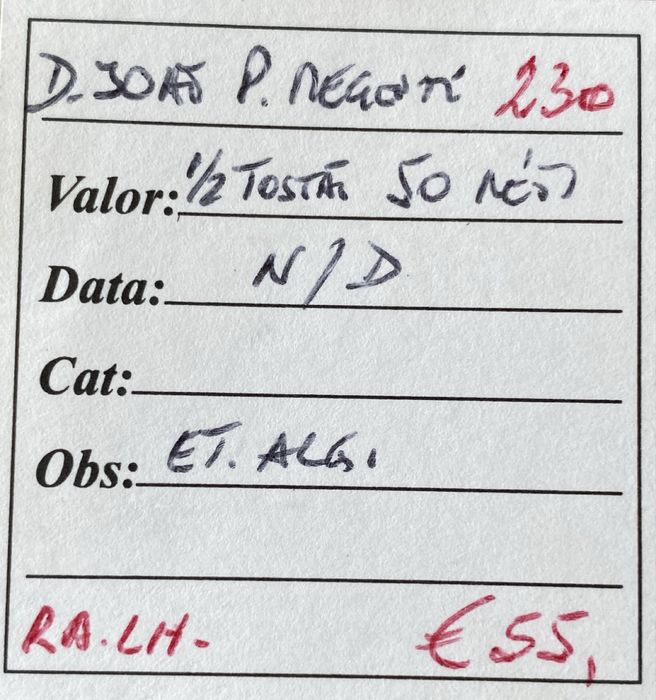 D. JOAÕ P. REGENTE 230
Valor: 1/2 TOSTÃO 50 RÉIS
Data: N/D
Cat:
Obs: ET. ALG.
RA.LH.- € 55,